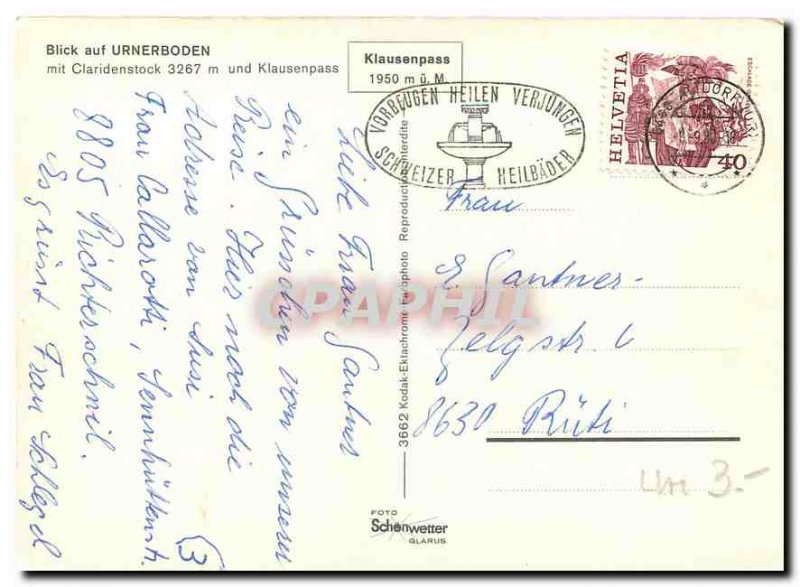 Blick auf URNERBODEN
mit Claridenstock 3267 m und Klausenpass
Klausenpass
1950 m ü. M.
VORBEUGEN HEILEN VERJUNGEN
SCHWEIZER HEILBÄDER
HELVETIA
40
Liebe Frau Gantner
ein Grüsschen von unserer
Reise. Hier noch die
Adresse von Susi
Frau Callarotti, Sennhüttenstr.
8805 Richterschwil.
Es grüsst Frau Schlegel
3662 Kodak-Ektachrome Reproduction interdite
Frau
E. Gantner-
Zelgstr. 6
8630 Rüti
CPAPHIL
um 3.-
FOTO
Schönwetter
GLARUS